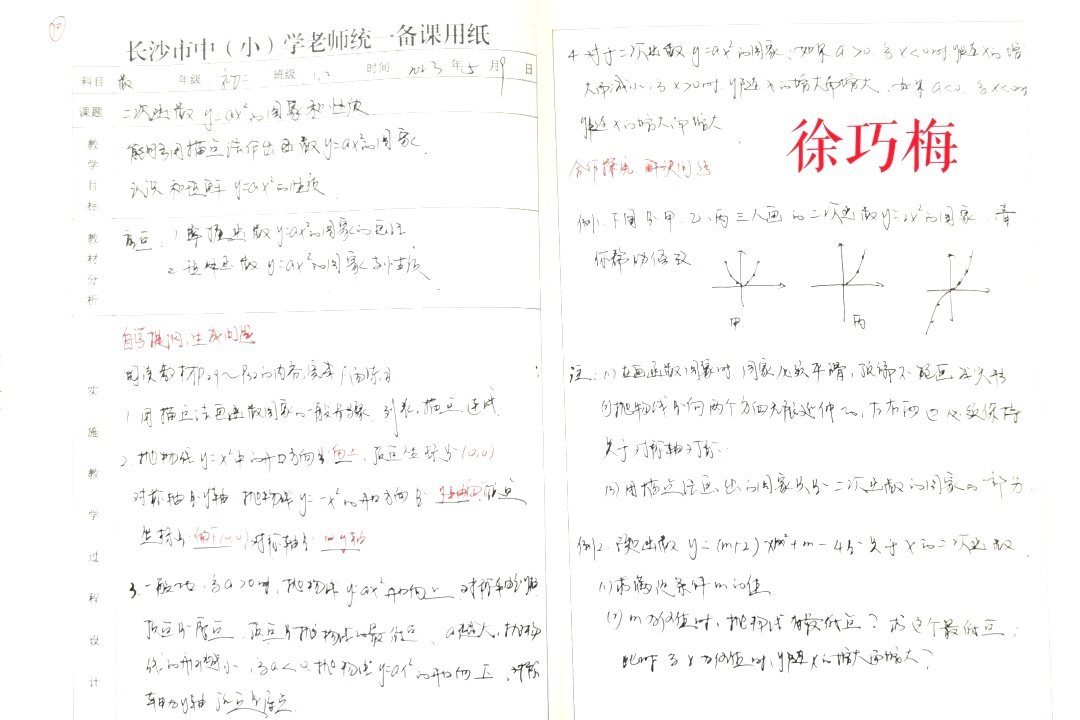 70
长沙市中（小）学老师统一备课用纸
科目 数 年级 初二 班级 时间 2023 年 5 月 9 日
课题 二次函数 y=ax²的图象和性质
教学目标
能够用描点法作出函数y=ax²的图象
认识和理解 y=ax²的性质
教材分析
重点：1.掌握函数y=ax²的图象的画法
2.理解函数y=ax²的图象与性质
实施教学过程设计
自学提纲，生成问题
阅读教材P29~P32的内容,完成下面练习
1.用描点法画函数图象的一般步骤 列表，描点 连线
2.抛物线 y=x²中的开口方向是向上，顶点坐标是(0,0)
对称轴是y轴 抛物线 y=-x²的开口方向是 顶点
坐标是 (0,0),对称轴是 y轴
3.一般地，当a>0时，抛物线 y=ax² 开口向上，对称轴是y轴
顶点是原点，顶点是抛物线的最低点，a越大，抛物
线的开口越小，当a<0 抛物线y=ax²的开口向下，对称
轴为y轴 顶点是原点
4.对于二次函数 y=ax²的图象，如果a>0，当x<0时y随x的增
大而减小，当x>0时，y随x的增大而增大，如果a<0，当x<0时
y随x的增大而增大
徐巧梅
合作探究，解决问题
例1.下图是甲、乙、丙三人画的二次函数y=2x²的图象，请
你帮助修改
甲 丙
注：(1)在画函数图象时 图象必须平滑，顶端不能画成尖形
(2)抛物线是向两个方向无限延伸的，左右两边必须保持
关于对称轴对称.
(3)用描点法画出的图象只是二次函数的图象的一部分.
例2.已知函数 y=(m+2)xm²+m-4是关于x的二次函数
(1)求满足条件m的值
(2)m为何值时，抛物线有最低点？求这个最低点；
此时当x为何值时，y随x的增大而增大？